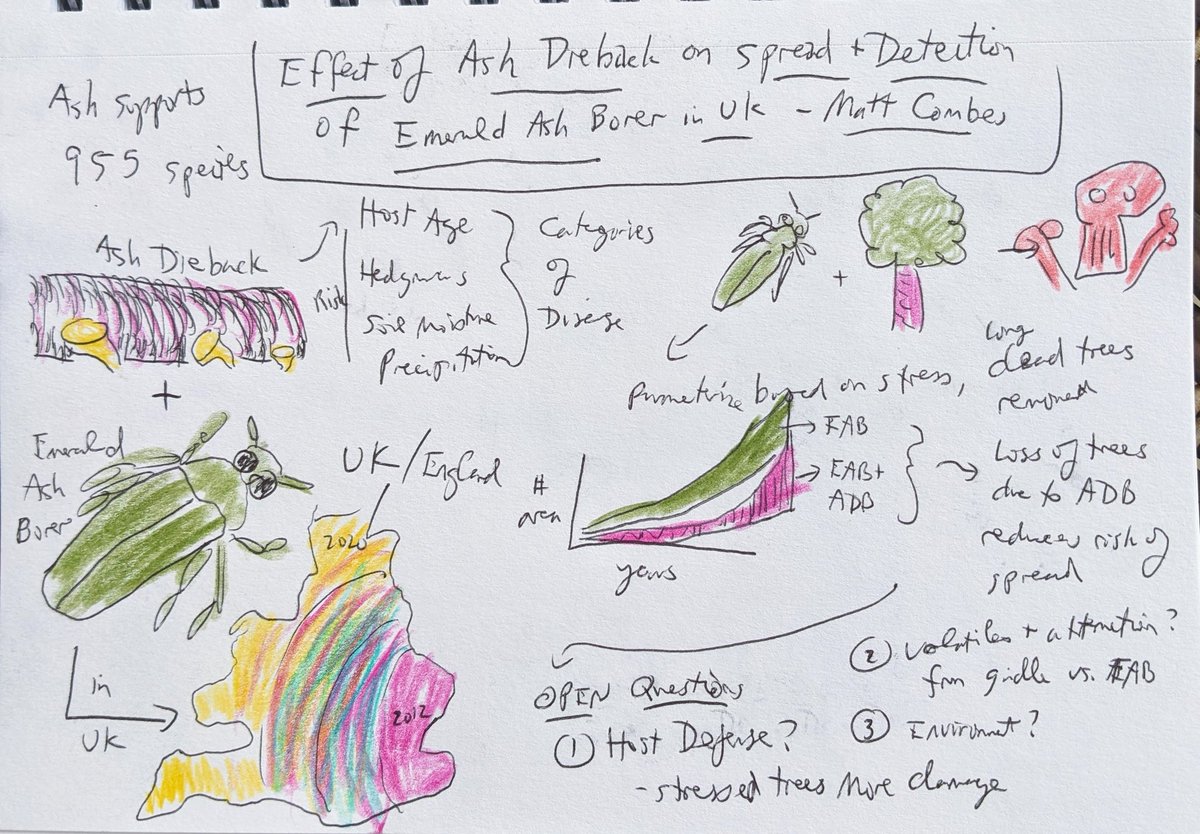 Effect of Ash Dieback on spread + Detection
of Emerald Ash Borer in UK - Matt Combes
Ash supports
955 species
Ash Dieback
Risk
Host Age
Hedgerows
Soil Moisture
Precipitation
Categories
of
Disease
+
+
Emerald
Ash
Borer
in
UK
UK/England
2020
2012
Parameterize based on stress,
long
dead trees
removed
#
area
years
EAB
EAB+
ADB
Loss of trees
due to ADB
reduces risk of
spread
OPEN Questions
① Host Defense?
- stressed trees more damage
② Volatiles + attraction?
from girdle vs. EAB
③ Environment?